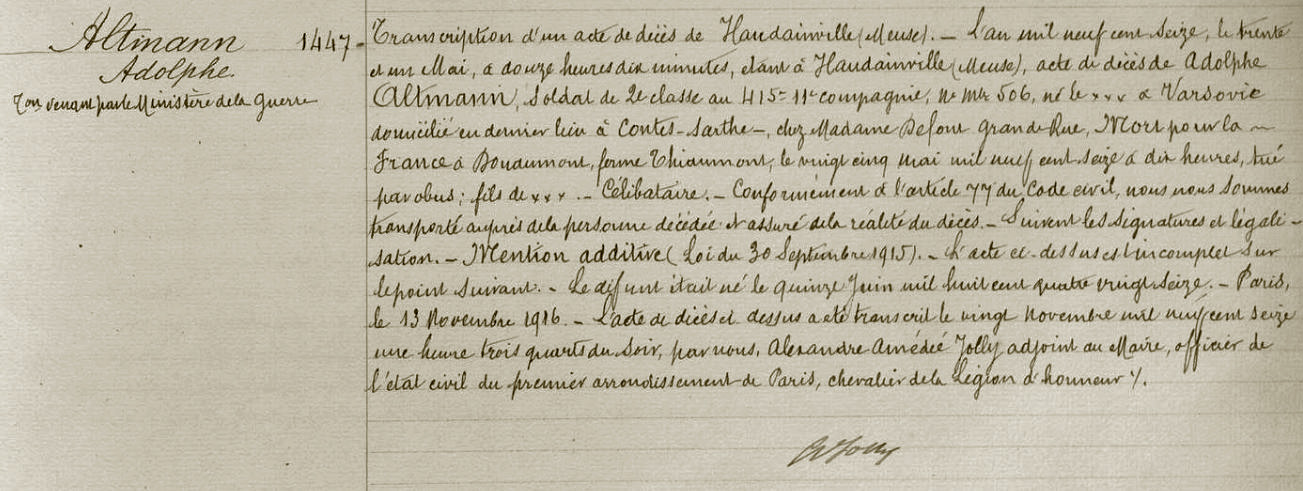 Altmann 1447-
Adolphe.
Ton venant par le Ministère de la Guerre
Transcription d'un acte de décès de Haudainville (Meuse). _ L'an mil neuf cent seize, le trente
et un Mai, à douze heures dix minutes, étant à Haudainville (Meuse), acte de décès de Adolphe
Altmann, Soldat de 2e classe au 415e 11e compagnie, No Mle 506, né le x x x à Varsovie
domicilié en dernier lieu à Contes-Sarthe-, chez Madame Defont grande Rue, Mort pour la ~
France à Douaumont, ferme Thiaumont, le vingt cinq mai mil neuf cent seize à dix heures, tué
par obus; fils de x x x . _ Célibataire. _ Conformément à l'article 77 du Code civil, nous nous sommes
transporté auprès de la personne décédée et assuré de la réalité du décès. _ Suivent les signatures et légali-
sation. _ Mention additive (Loi du 30 Septembre 1915). _ L'acte ci-dessus est incomplet sur
le point suivant. _ Le défunt était né le quinze Juin mil huit cent quatre vingt seize. _ Paris,
le 13 Novembre 1916. _ L'acte de décès ci dessus a été transcrit le vingt novembre mil neuf cent seize
une heure trois quarts du soir, par nous, Alexandre Amédée Jolly adjoint au Maire, officier de
l'état civil du premier arrondissement de Paris, chevalier de la Légion d'honneur ./.
Jolly